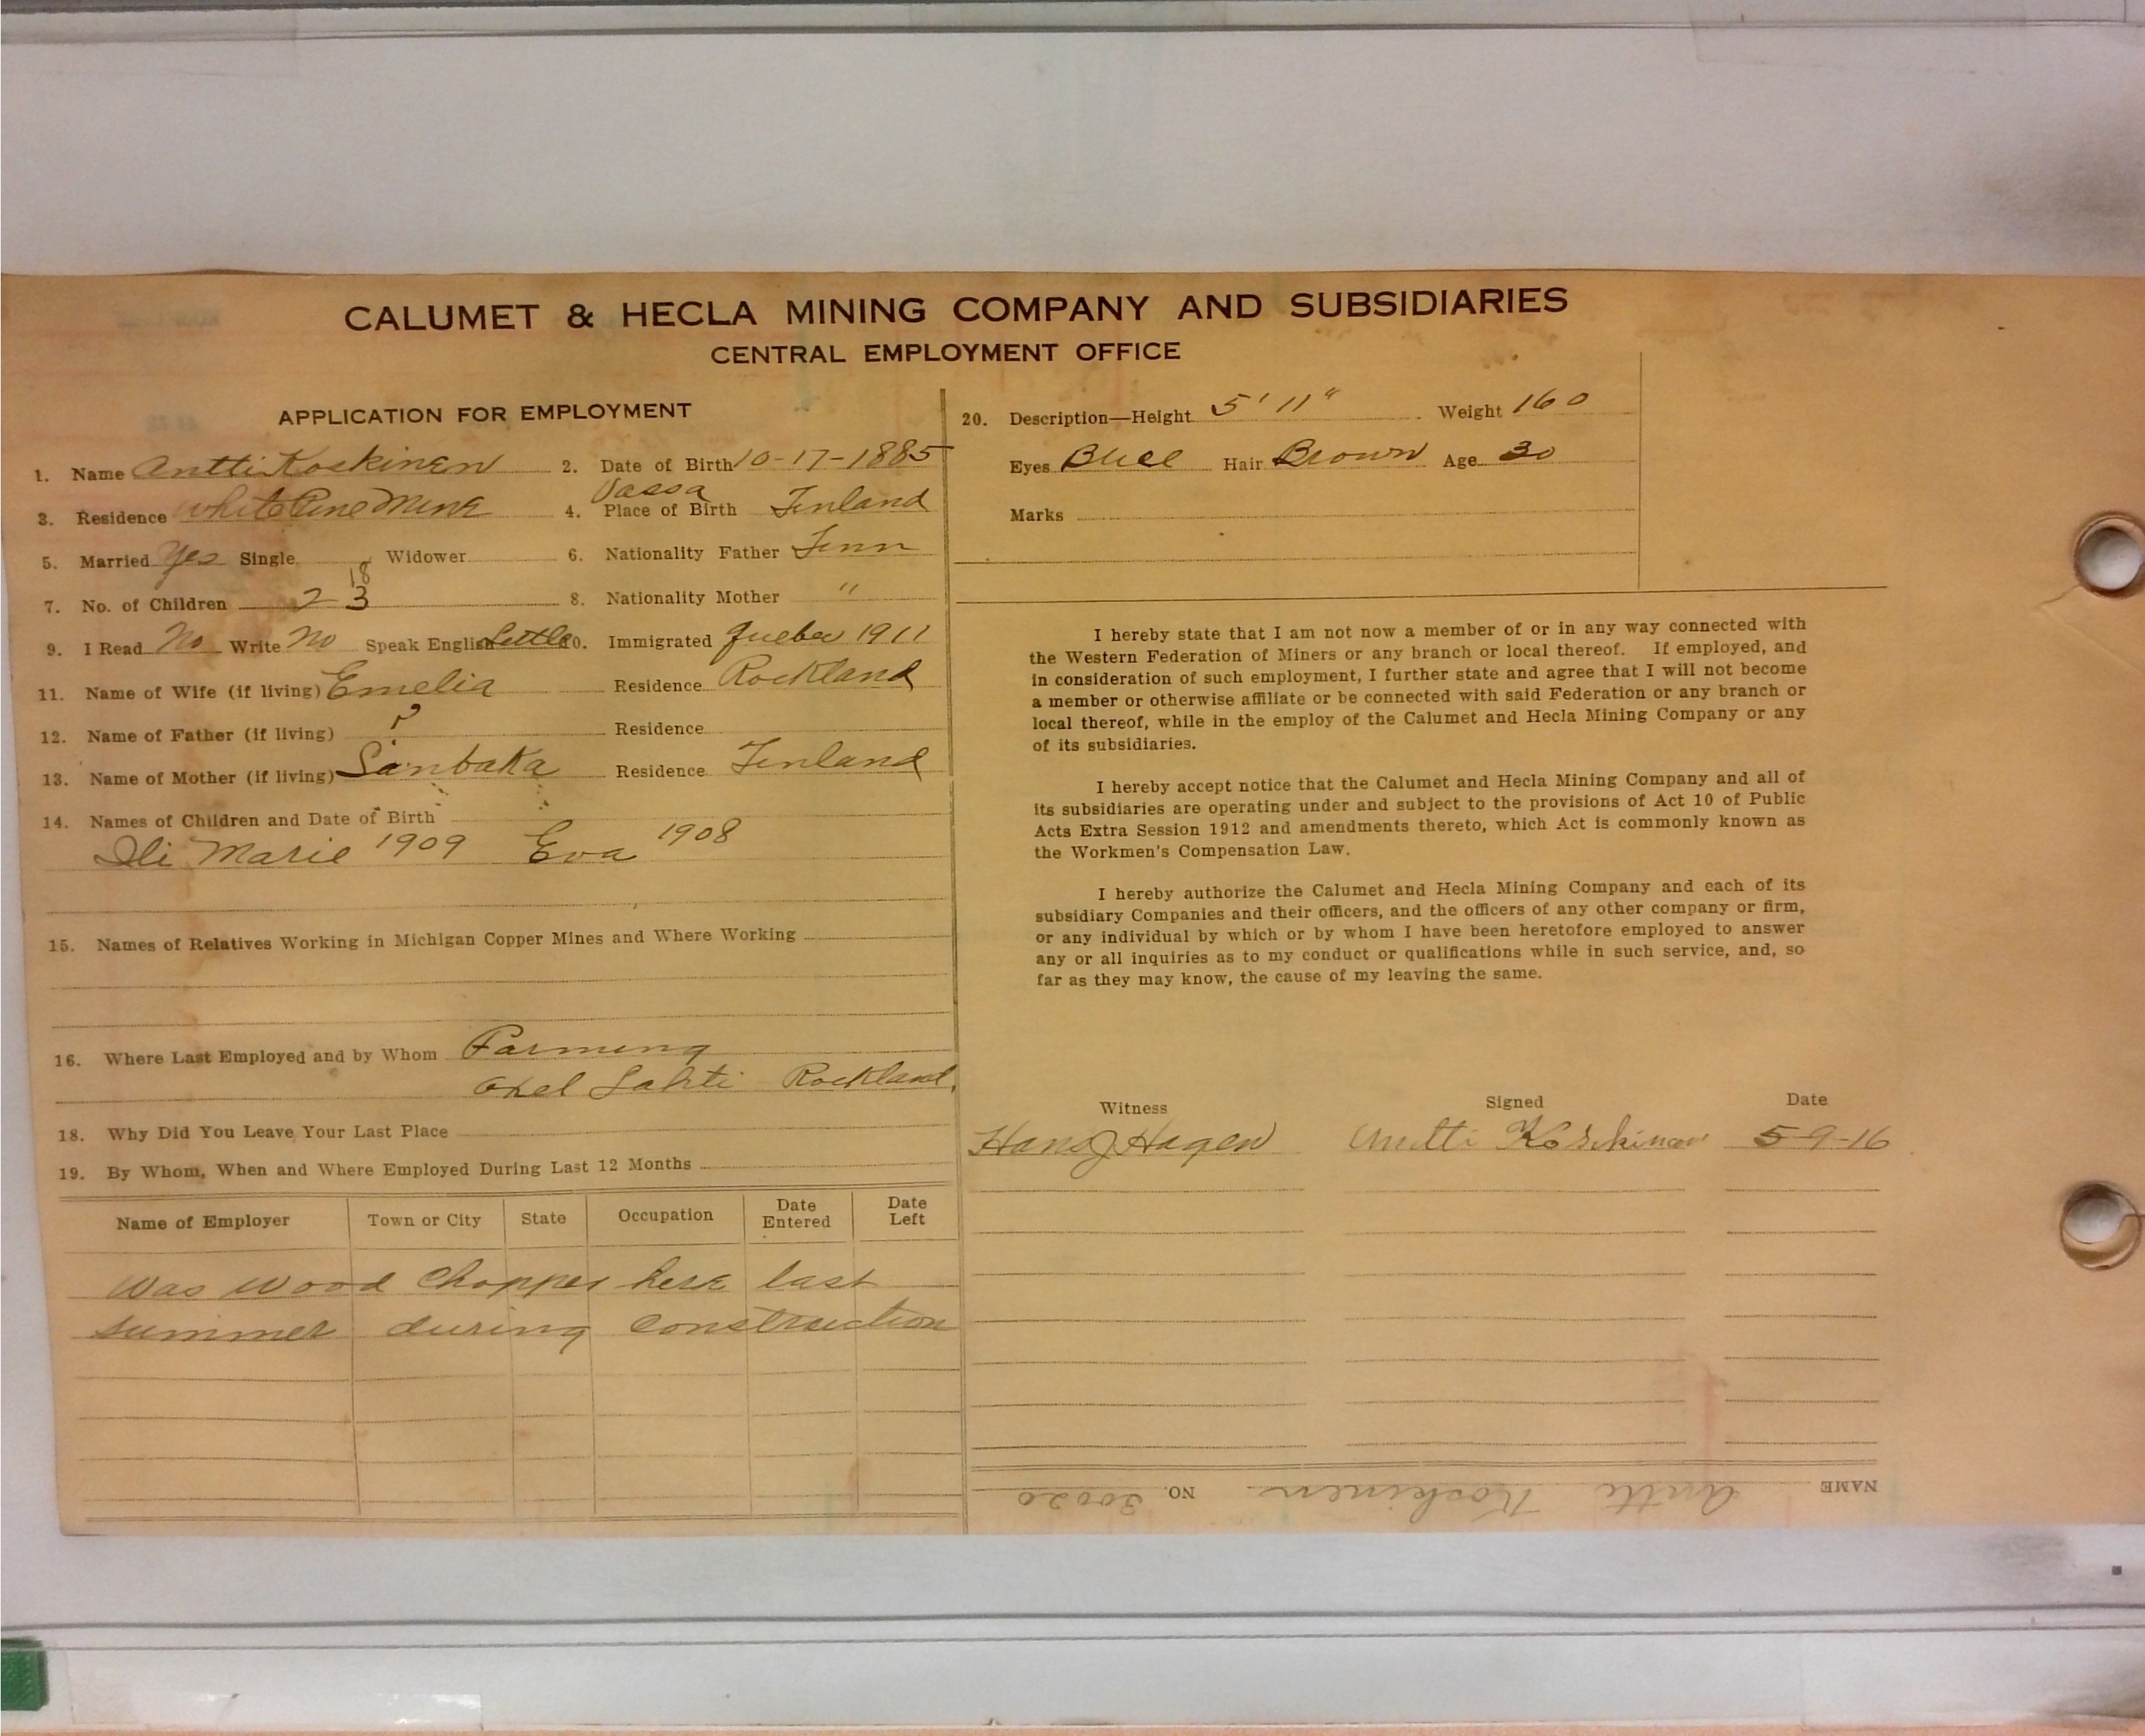 CALUMET & HECLA MINING COMPANY AND SUBSIDIARIES
CENTRAL EMPLOYMENT OFFICE
APPLICATION FOR EMPLOYMENT
1. Name Antti Koskinen 2. Date of Birth 10-17-1885
3. Residence White Pine Mine 4. Place of Birth Vassa Finland
5. Married Yes Single Widower 6. Nationality Father Finn
7. No. of Children 2 3 18 8. Nationality Mother "
9. I Read No Write No Speak English Little 10. Immigrated Quebec 1911
11. Name of Wife (if living) Emelia Residence Rockland
12. Name of Father (if living) ? Residence
13. Name of Mother (if living) Residence Finland
14. Names of Children and Date of Birth
Marie 1909 Eva 1908
15. Names of Relatives Working in Michigan Copper Mines and Where Working
16. Where Last Employed and by Whom Farming
Axel Lahti Rockland.
18. Why Did You Leave Your Last Place
19. By Whom, When and Where Employed During Last 12 Months
Name of Employer Town or City State Occupation Date Entered Date Left
Was Wood Chopper here last
summer during construction
20. Description—Height 5' 11" Weight 160
Eyes Blue Hair Brown Age 30
Marks
I hereby state that I am not now a member of or in any way connected with
the Western Federation of Miners or any branch or local thereof. If employed, and
in consideration of such employment, I further state and agree that I will not become
a member or otherwise affiliate or be connected with said Federation or any branch or
local thereof, while in the employ of the Calumet and Hecla Mining Company or any
of its subsidiaries.
I hereby accept notice that the Calumet and Hecla Mining Company and all of
its subsidiaries are operating under and subject to the provisions of Act 10 of Public
Acts Extra Session 1912 and amendments thereto, which Act is commonly known as
the Workmen's Compensation Law.
I hereby authorize the Calumet and Hecla Mining Company and each of its
subsidiary Companies and their officers, and the officers of any other company or firm,
or any individual by which or by whom I have been heretofore employed to answer
any or all inquiries as to my conduct or qualifications while in such service, and, so
far as they may know, the cause of my leaving the same.
Witness Signed Date
Hans J Hagen Antti Koskinen 5-9-16
NAME Antti Koskinen NO. 30020